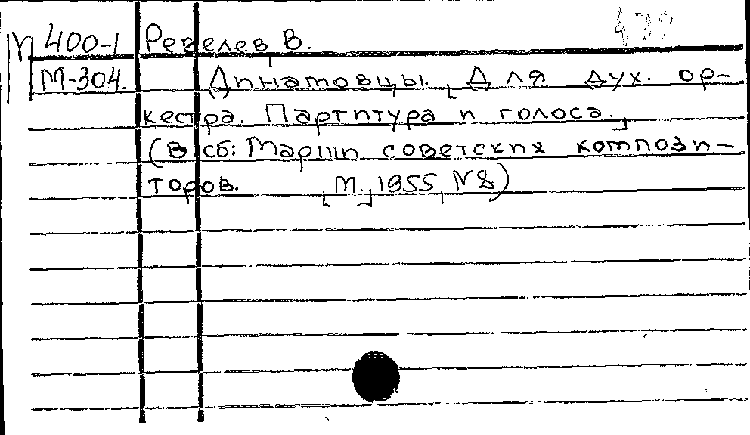 М 400-1 Регелев В.
М-304. Динамовцы. Для дух. ор-
кестра. Партитура и голоса.
(В сб: Марши советских компози-
торов. М., 1955, №8)